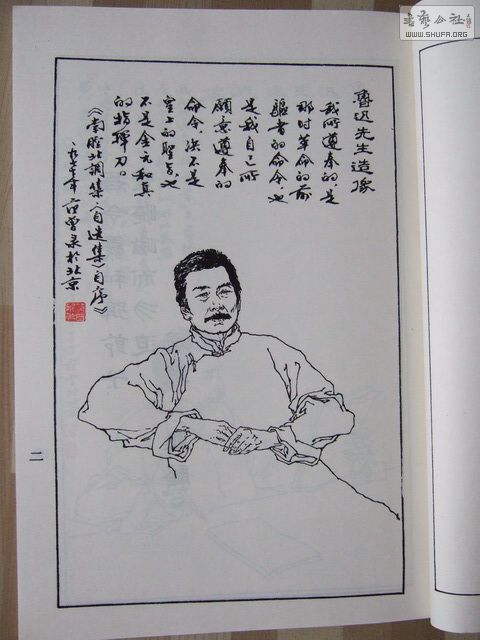 魯迅先生造像
我所遵奉的,是
那时革命的前
驅者的命令,也
是我自己所
願意遵奉的
命令,决不是
皇上的聖旨,也
不是金元和真
的指揮刀。
《南腔北調集〈自选集〉自序》
一九七七年 范曾录於北京
二
書藝公社
WWW.SHUFA.ORG